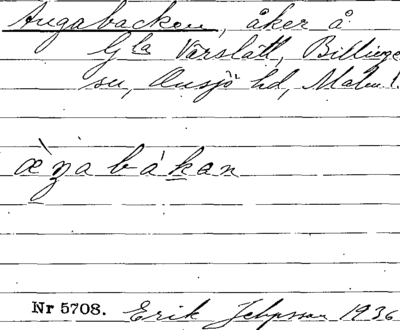 Ängabacken, åker å
Gla Värslätt, Billinge
sn, Onsjö hd, Malm. l.
æ̀ŋabákan
Nr 5708. Erik Jeppsson 1936